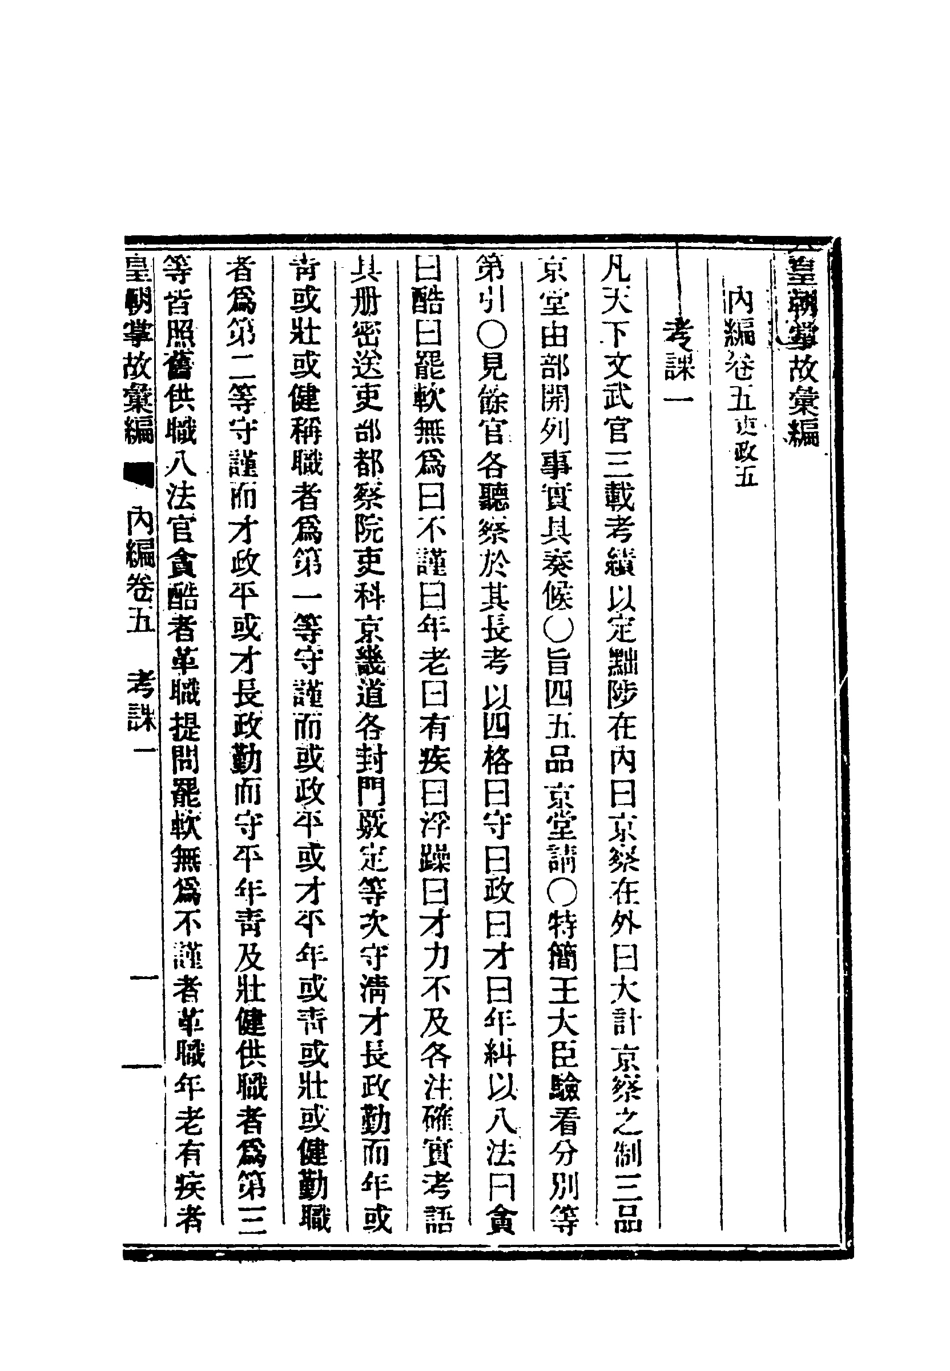 皇朝掌故彙編
內編卷五吏政五
考課一
凡天下文武官三載考績以定黜陟在內曰京察在外曰大計京察之制三品
京堂由部開列事實具奏候〇旨四五品京堂請〇特簡王大臣驗看分別等
第引〇見餘官各聽察於其長考以四格曰守曰政曰才曰年糾以八法曰貪
曰酷曰罷軟無爲曰不謹曰年老曰有疾曰浮躁曰才力不及各注確實考語
具册密送吏部都察院吏科京畿道各封門覈定等次守淸才長政勤而年或
靑或壯或健稱職者爲第一等守謹而或政平或才平年或靑或壯或健勤職
者爲第二等守謹而才政平或才長政勤而守平年靑及壯健供職者爲第三
等皆照舊供職八法官貪酷者革職提問罷軟無爲不謹者革職年老有疾者
皇朝掌故彙編 內編卷五 考課一 一